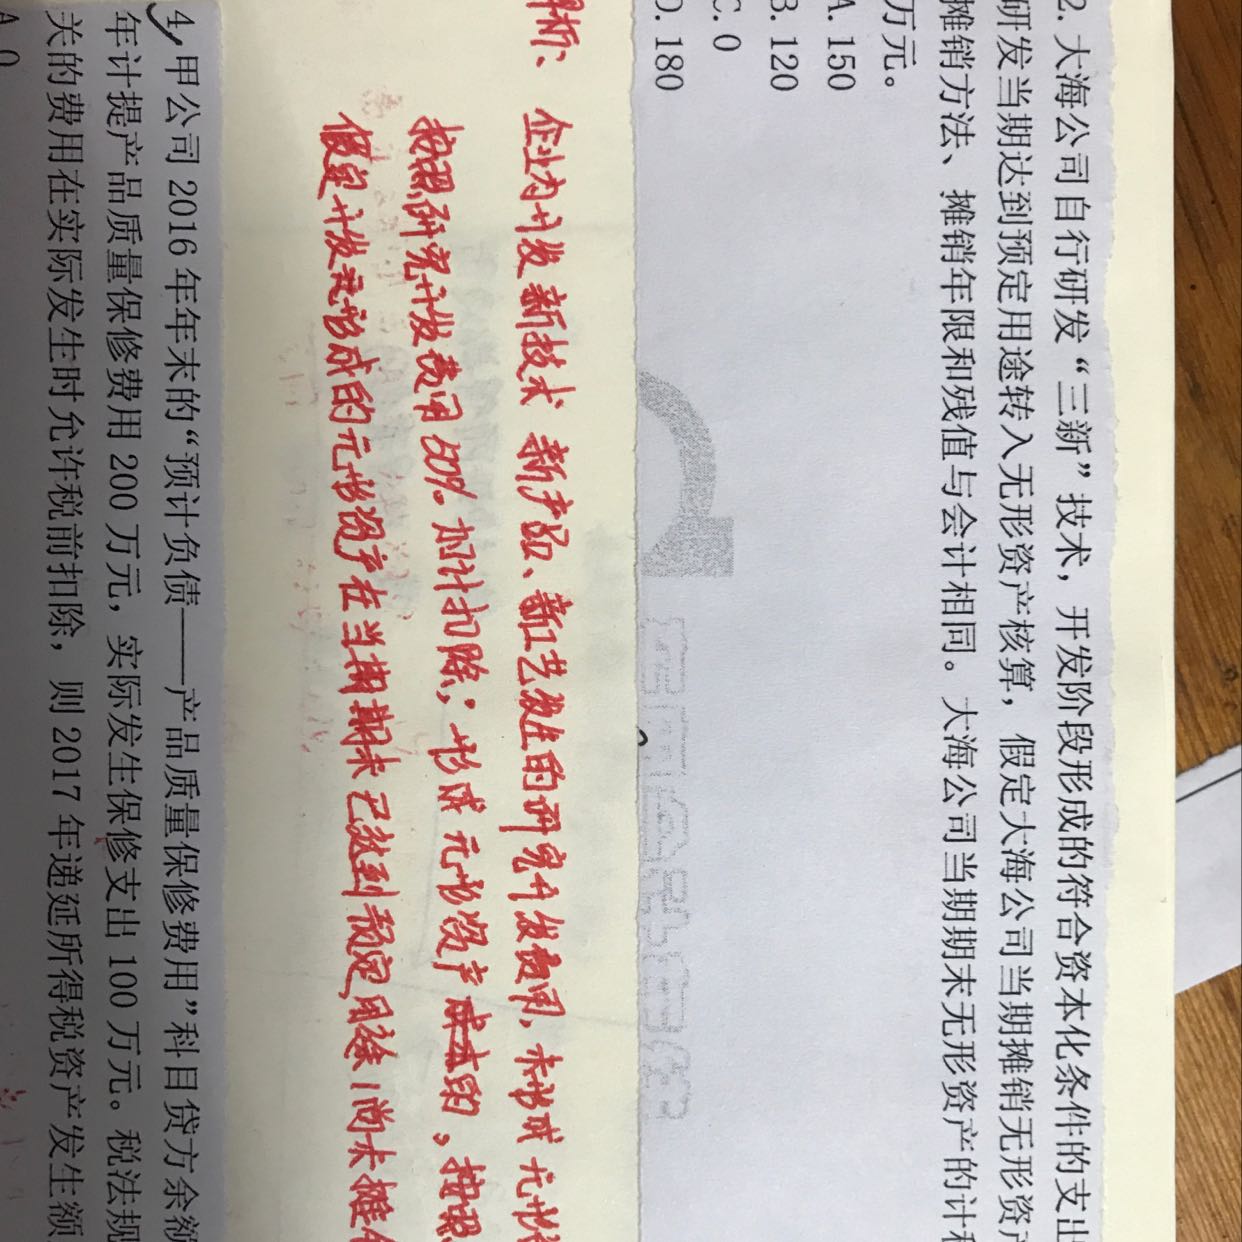 2. 大海公司自行研发“三新”技术，开发阶段形成的符合资本化条件的支出
研发当期达到预定用途转入无形资产核算，假定大海公司当期摊销无形资产
摊销方法、摊销年限和残值与会计相同。大海公司当期期末无形资产的计税
万元。
A. 150
B. 120
C. 0
D. 180
解析、企业为开发新技术、新产品、新工艺发生的研究开发费用，未形成无形
按照研究开发费用50%加计扣除；形成无形资产的，按照
假定开发无形成的无形资产在当期期末已达到预定用途(尚未摊
4. 甲公司 2016 年年末的“预计负债——产品质量保修费用”科目贷方余额
年计提产品质量保修费用 200 万元，实际发生保修支出 100 万元。税法规
关的费用在实际发生时允许税前扣除，则 2017 年递延所得税资产发生额
A. 0